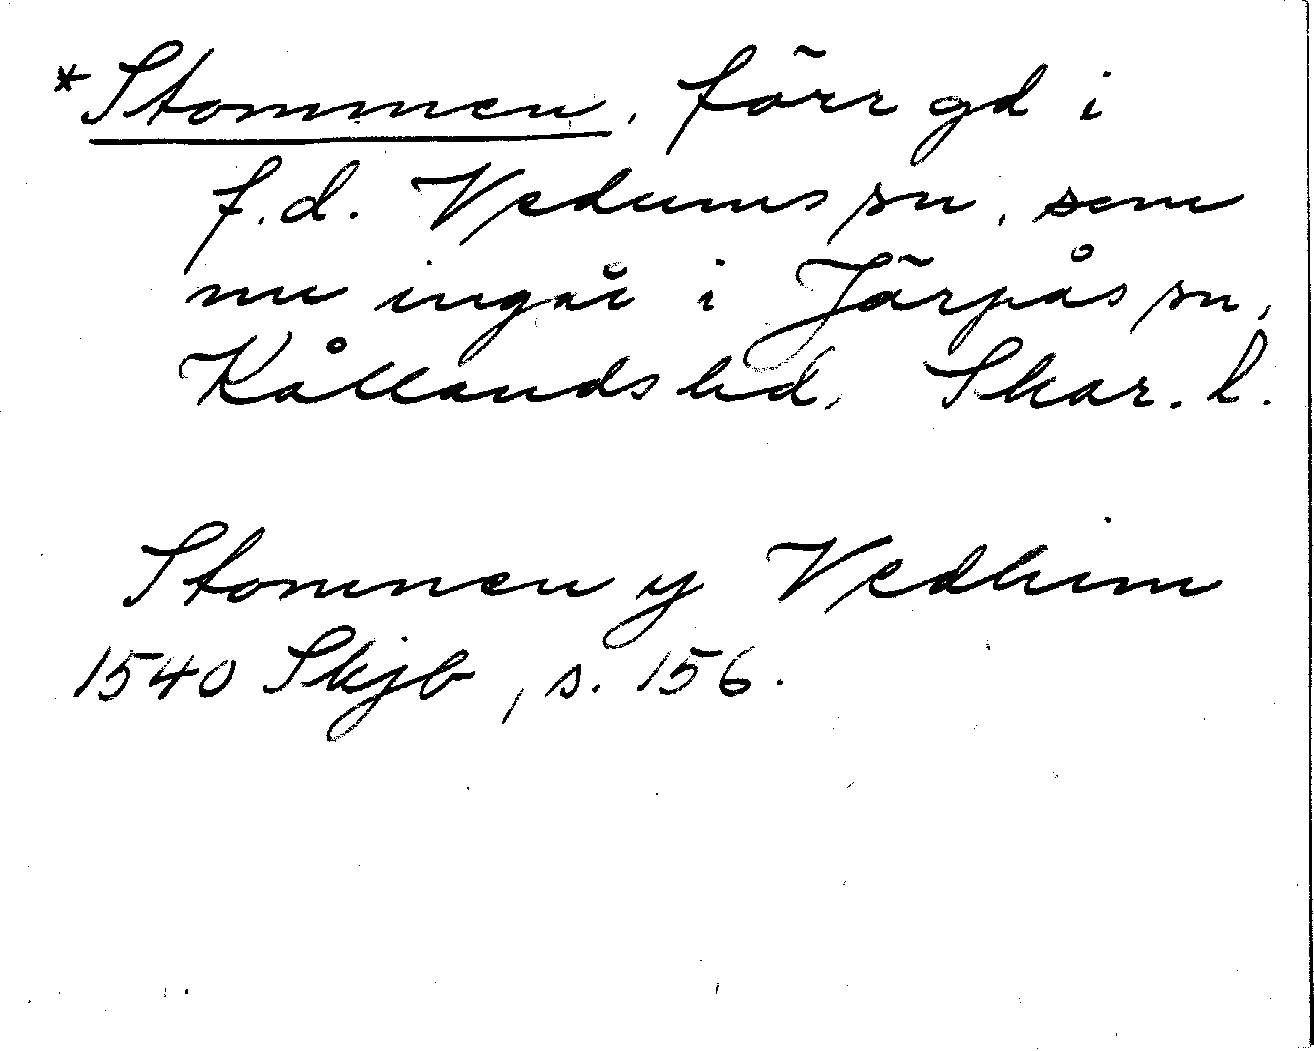 *Stommen, förr gd i
f.d. Vedums sn, som
nu ingår i Järpås sn,
Kållands hd, Skar. l.
Stommen y Vedhim
1540 Skjb, s. 156.